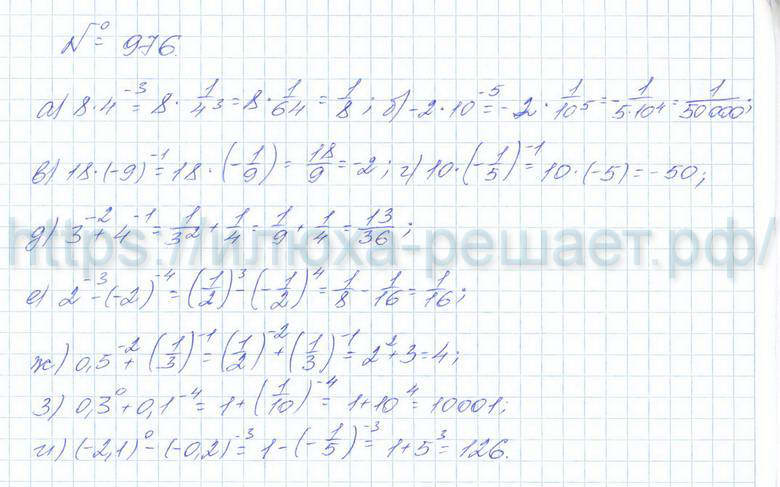 № 976.
а) 8·4⁻³ = 8 · 1/4³ = 8 · 1/64 = 1/8; б) -2·10⁻⁵ = -2 · 1/10⁵ = -1/5·10⁴ = 1/50000;
в) 18·(-9)⁻¹ = 18 · (-1/9) = 18/9 = -2; г) 10·(-1/5)⁻¹ = 10·(-5) = -50;
д) 3⁻² + 4⁻¹ = 1/3² + 1/4 = 1/9 + 1/4 = 13/36;
https://илюха-решает.рф/
е) 2⁻³ - (-2)⁻⁴ = (1/2)³ - (-1/2)⁴ = 1/8 - 1/16 = 1/16;
ж) 0,5⁻² + (1/3)⁻¹ = (1/2)⁻² + (1/3)⁻¹ = 2² + 3 = 4;
з) 0,3⁰ + 0,1⁻⁴ = 1 + (1/10)⁻⁴ = 1 + 10⁴ = 10001;
и) (-2,1)⁰ - (-0,2)⁻³ = 1 - (-1/5)⁻³ = 1 + 5³ = 126.